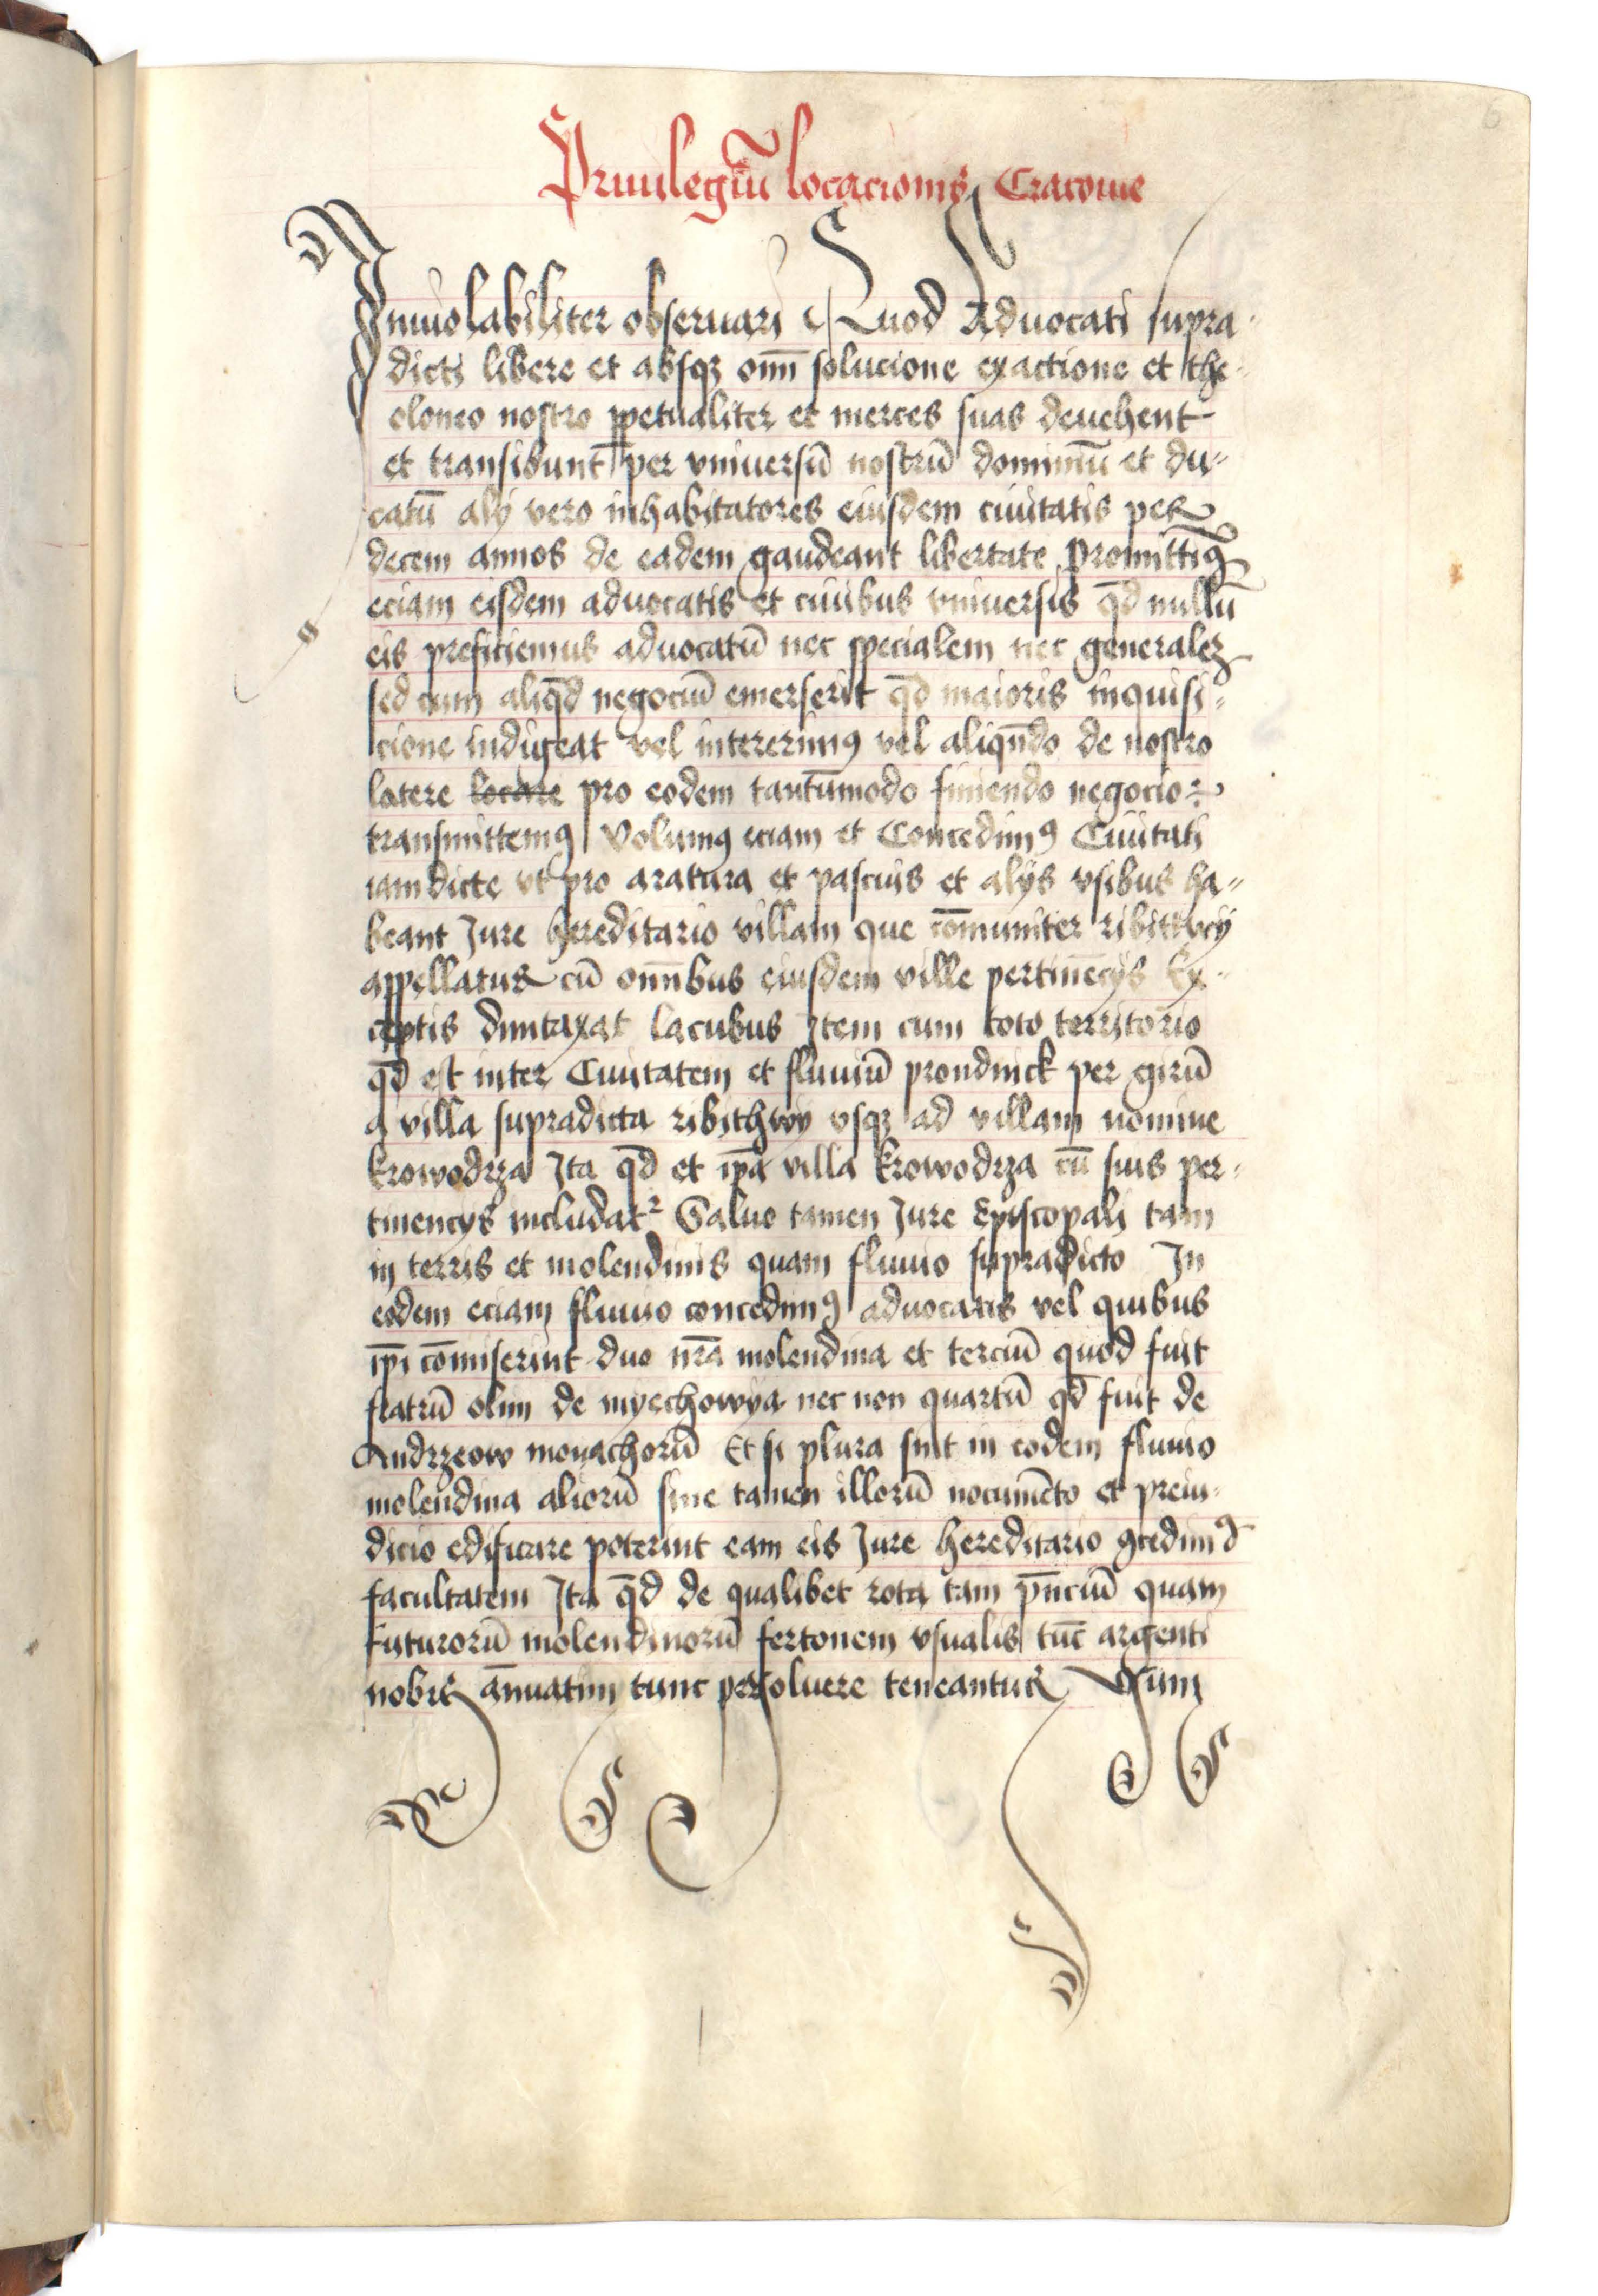 6
Priuilegiū locacionis Cracouie
Inuiolabiliter obseruari Quod Aduocati supra-
dicti libere et absqꝫ om̄i solucione exactione et the-
oloneo nostro ꝑpetualiter et merces suas deuehent
et transibunt per vniuersū nostrū dominiū et du-
catū alij vero inhabitatores eiusdem ciuitatis per
decem annos de eadem gaudeant libertate Promittimꝰ
eciam eisdem aduocatis et ciuibus vniuersis qd̄ nullū
eis preficiemus aduocatū nec specialem nec generalez
sed cum aliqd̄ negociū emerserit qd̄ maioris inquisi-
cione indigeat vel intererimꝰ vel aliqn̄do de nostro
latere locare pro eodem tantūmodo finiendo negocio
transmittemꝰ Volumꝰ eciam et Concedimꝰ Ciuitati
iamdicte vt pro aratura et pascuis et alijs vsibus ha-
beant Jure hereditario villam que cōmuniter ribittvcij
appellatur cū om̄ibus eiusdem ville pertinēcijs Ex-
ceptis dumtaxat lacubus Item cum toto territorio
qd̄ est inter Ciuitatem et fluuiū prondnick per girū
a villa supradicta ribithwy vsqꝫ ad villam nomine
krowodrza Ita qd̄ et ip̄a villa krowodrza cū suis per-
tinencys includat̉ Saluo tamen Jure Episcopali tam
in terris et molendinis quam fluuio supradicto In
eodem eciam fluuio concedimꝰ aduocatis vel quibus
ip̄i cōmiserint duo nr̄a molendina et terciū quod fuit
fratrū olim de myechowya nec non quartū qd̄ fuit de
Andrzeow monachorū Et si plura sint in eodem fluuio
molendina aliorū sine tamen illorū nocumēto et preiu-
dicio edificare poterint eam eis Jure hereditario ꝯcedimꝰ
facultatem Ita qd̄ de qualibet rota tam pn̄ciū quam
futurorū molendinorū fertonem vsualis tūc argenti
nobis an̄uatim tunc persoluere teneantur Cum